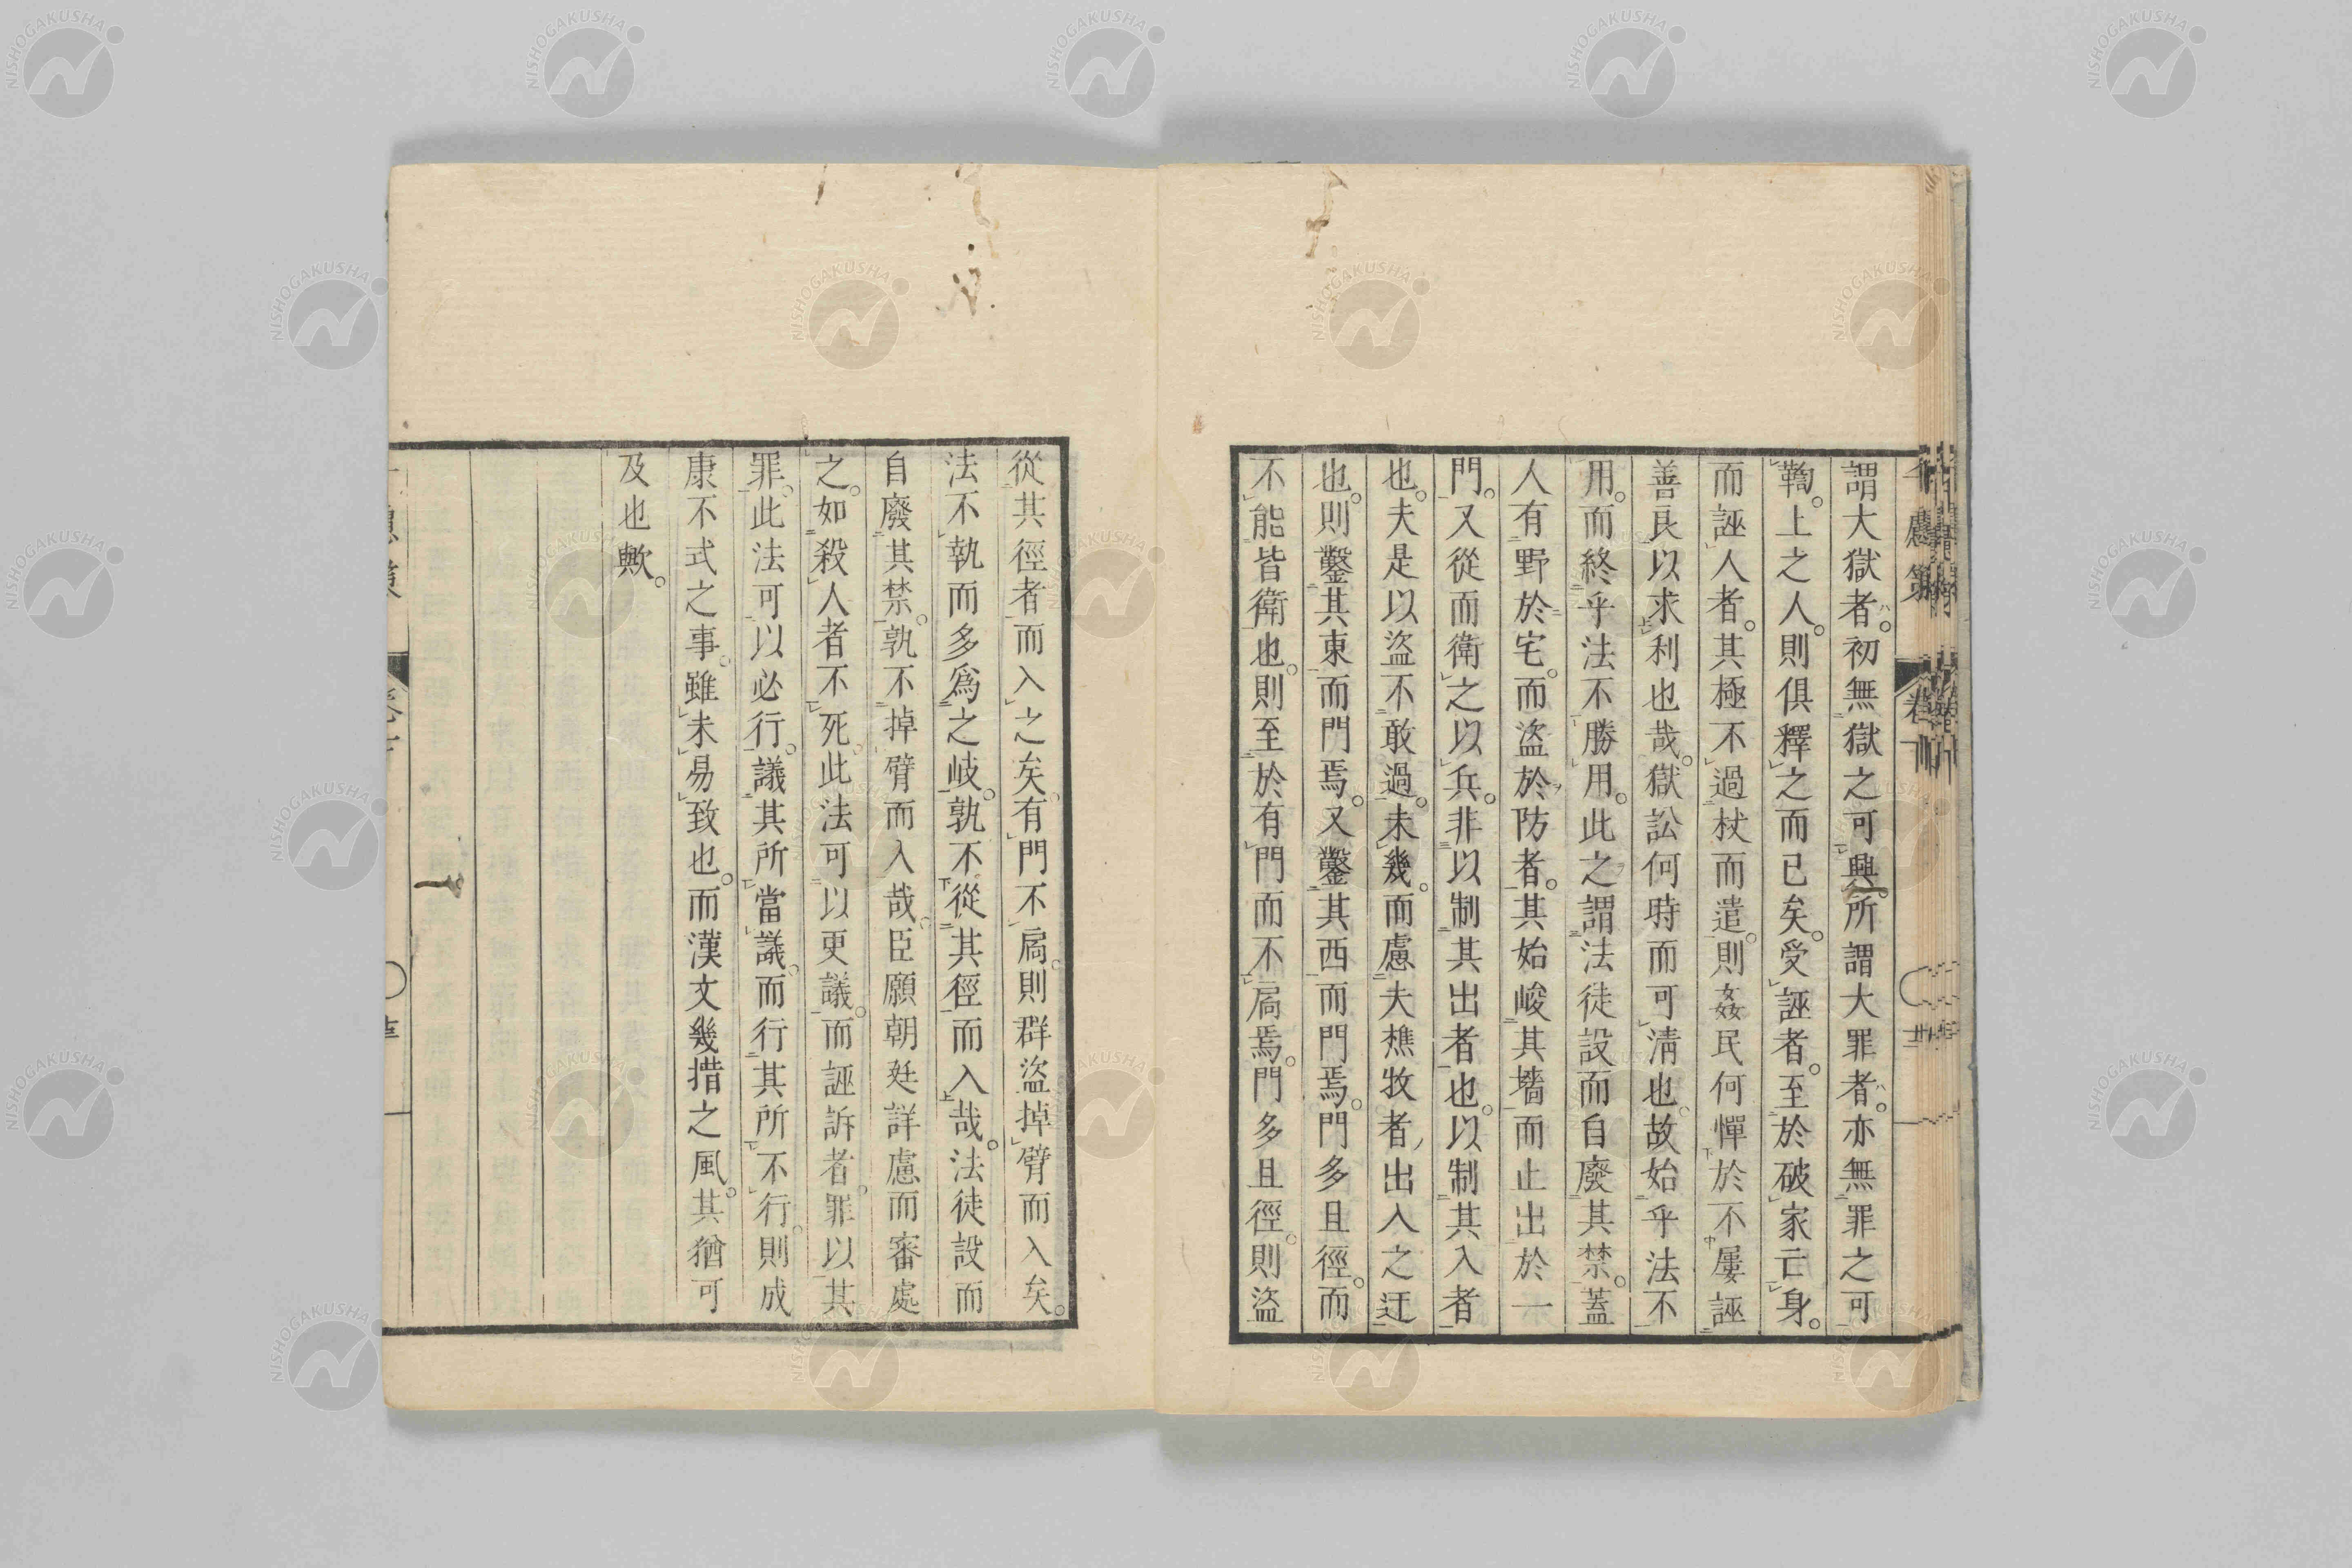 謂大獄者。初無獄之可興。所謂大罪者。亦無罪之可
鞫。上之人。則俱釋之而已矣。受誣者。至於破家亡身。
而誣人者。其極不過杖而遣。則姦民何憚於不屢誣
善良以求利也哉。獄訟何時而可清也。故始乎法不
用。而終乎法不勝用。此之謂法徒設而自廢其禁。蓋
人有野於宅。而盜於防者。其始峻其墻而止出於一
門。又從而衛之以兵。非以制其出者也。以制其入者
也。夫是以盜不敢過。未幾。而慮夫樵牧者出入之迂
也。則鑿其東而門焉。又鑿其西而門焉。門多且徑。而
不能皆衛也。則至於有門而不扃焉。門多且徑。則盜
從其徑者而入之矣。有門不扃。則群盜掉臂而入矣。
法不執而多爲之岐。孰不從其徑而入哉。法徒設而
自廢其禁。孰不掉臂而入哉。臣願朝廷詳慮而審處
之。如殺人者不死。此法可以更議。而誣訴者。罪以其
罪。此法可以必行。議其所當議。而行其所不行。則成
康不式之事。雖未易致也。而漢文幾措之風。其猶可
及也歟。
千慮策 卷下
NISHOGAKUSHA